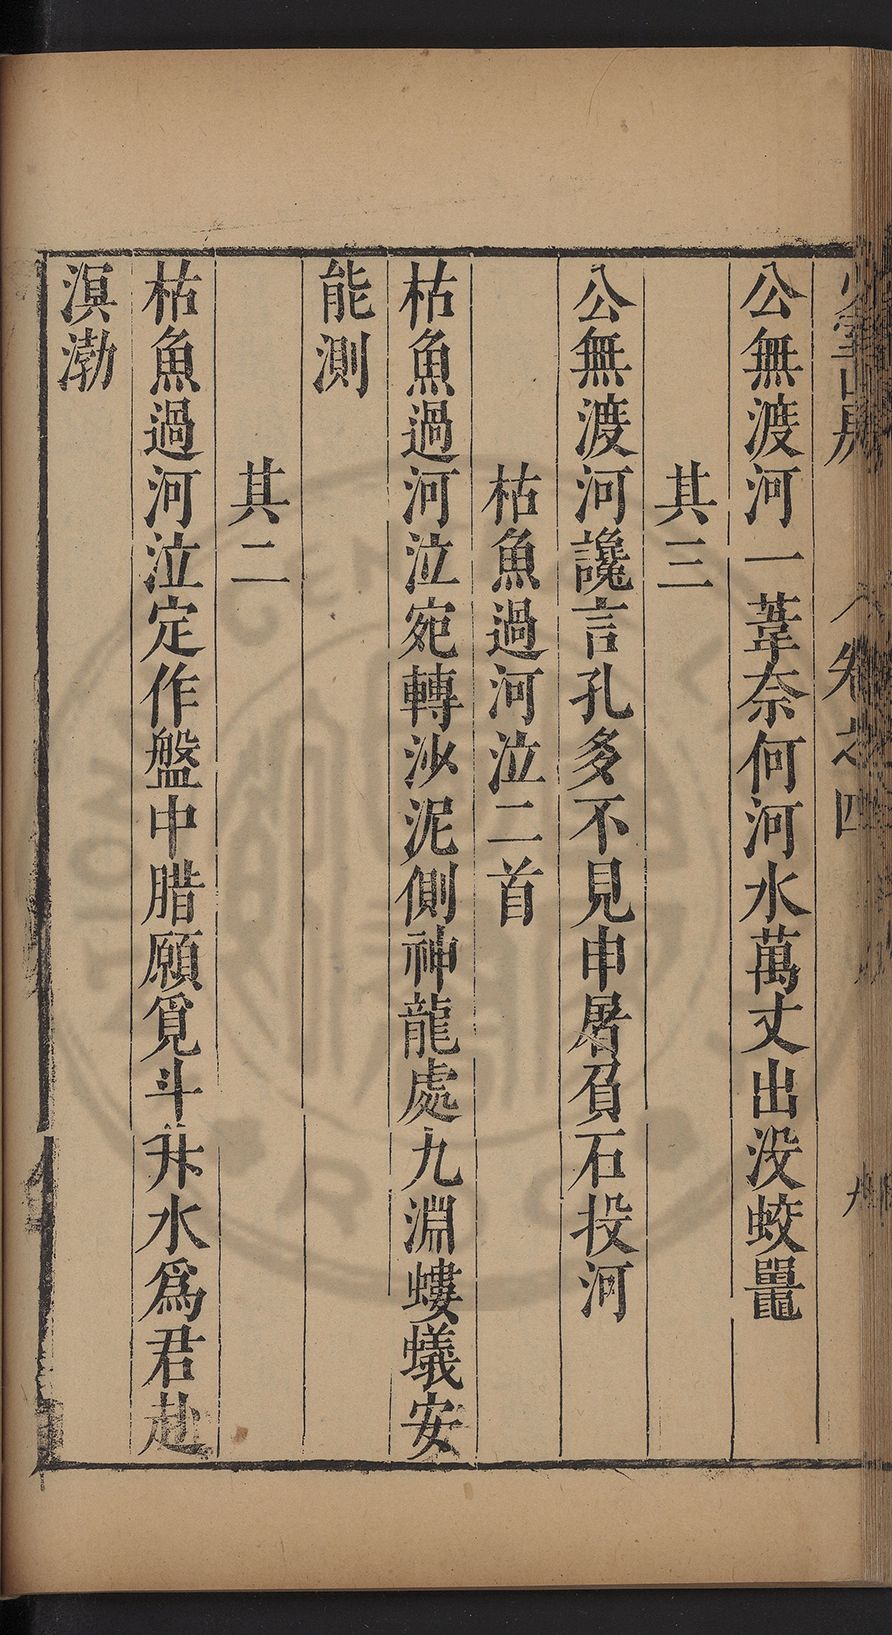 少室山房
卷之四
九
公無渡河一葦奈何河水萬丈出没蛟鼉
其三
公無渡河讒言孔多不見申屠負石投河
枯魚過河泣二首
枯魚過河泣宛轉沙泥側神龍處九淵螻蟻安
能測
其二
枯魚過河泣定作盤中腊願覓斗升水爲君赴
溟渤